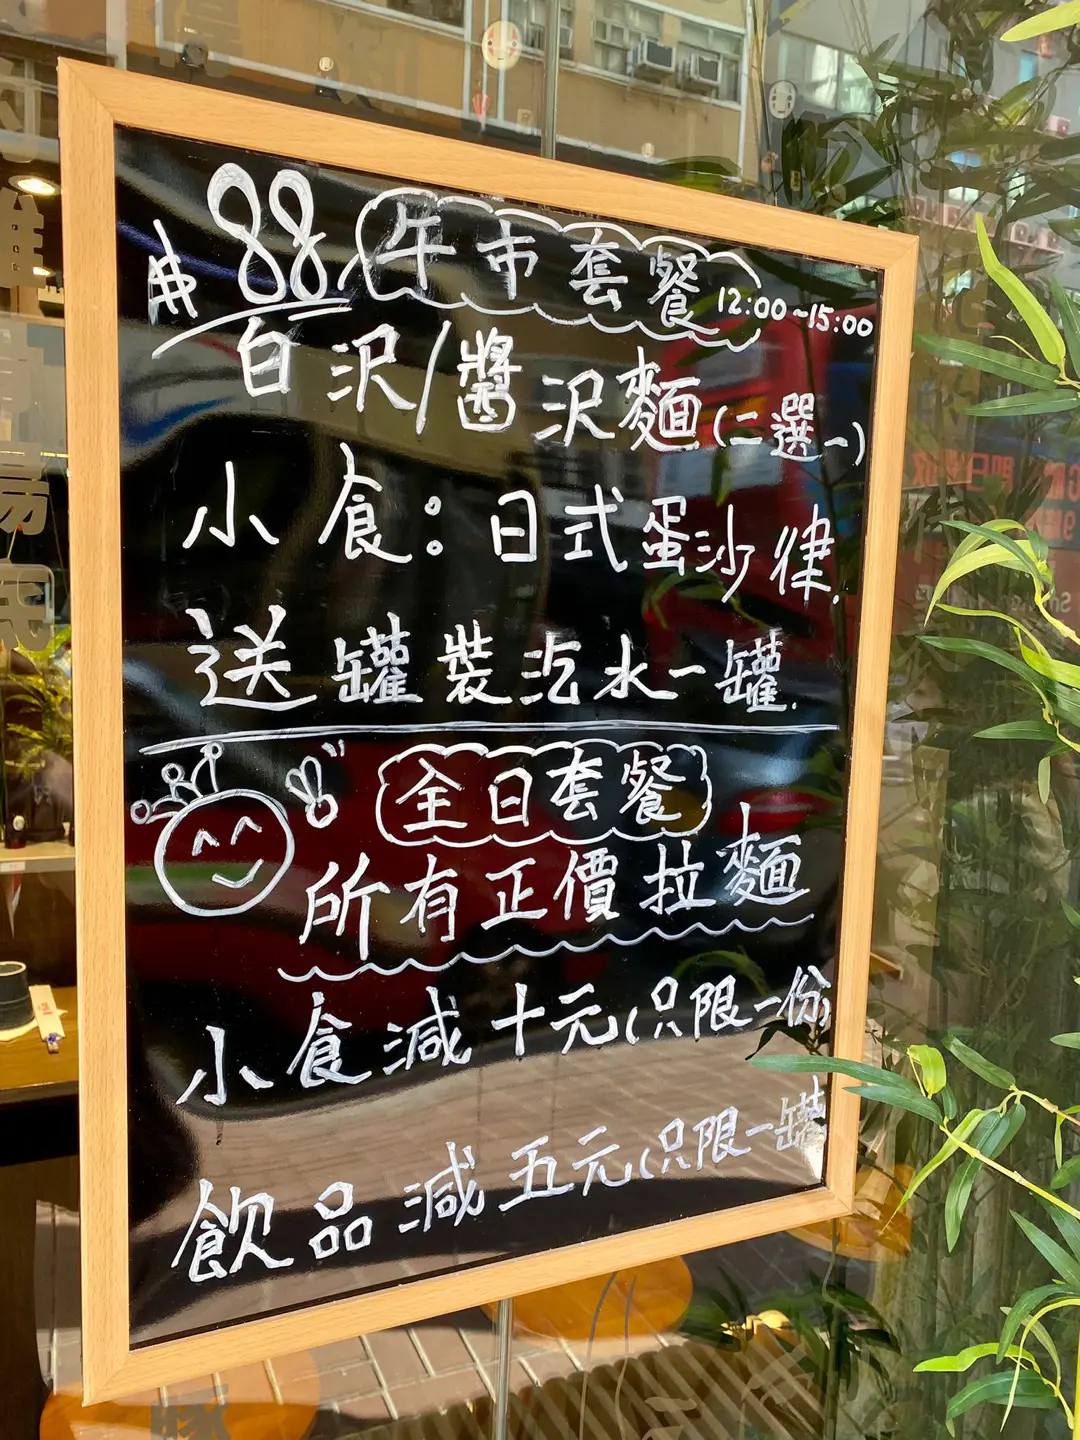 $88 午市套餐 12:00~15:00
白沢/醬沢麵(二選一)
小食:日式蛋沙律.
送罐裝汽水一罐.
全日套餐
所有正價拉麵
小食減十元(只限一份
飲品減五元(只限一罐